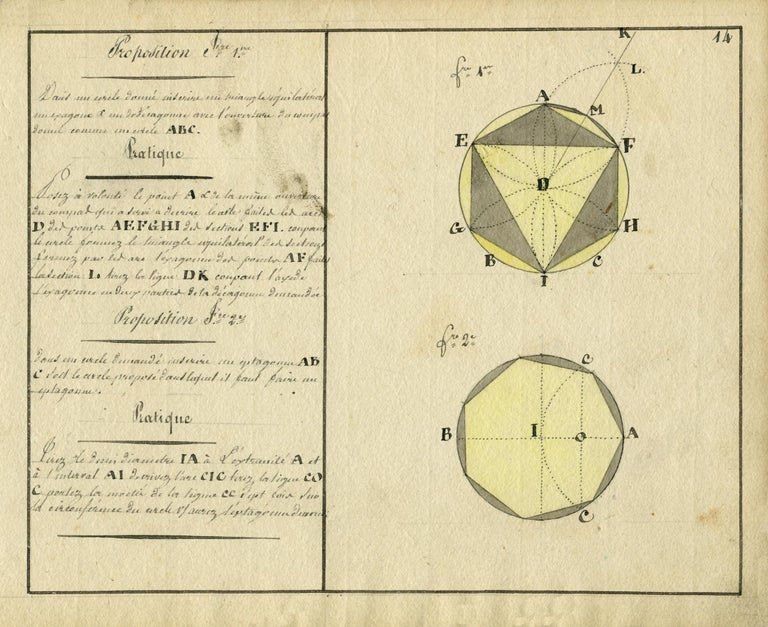 Proposition fre 1re
Dans un cercle donné inscrire un triangle equilateral
un exagone & un dodecagone avec l'ouverture du compas
donné comme un cercle ABC.
Pratique
Posez à volonté le point A & de la même ouverture
du compas qui a servi a decrire le cercle faites les arcs
D des points AEFGHI des sections EFI. coupant
le cercle formez le triangle equilateral des sections
formez par les arc l'exagone des points AF faites
la section L. tirez la ligne DK coupant l'arc de
l'exagonne en deux parties de la decagonne demandée
Proposition fre 2e
dans un cercle demandé inscrire un eptagonne AB
C c'est le cercle proposé dans lequel il faut faire un
eptagonne.
Pratique
Tirez le demi diametre IA à l'extranité A et
à l'interval AI decrivez l'arc CIC tirez la ligne CO
C portez la moitié de la ligne CC sept fois sur
la circonférence du cercle v/aurez l'eptagonne
14
fre 1re
K
L.
A
M
E
F
D
G
H
B
C
I
fre 2e
C
B
I
O
A
C